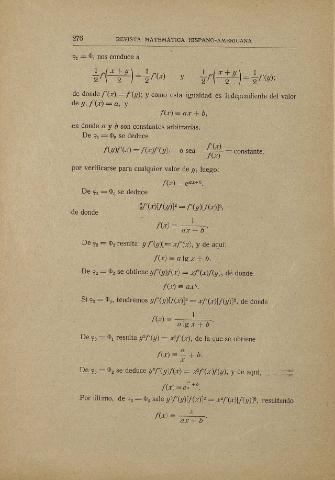 276 REVISTA MATEMÁTICA HISPANO-AMERICANA
φ₁ = Φ₁ nos conduce a
1/2 f'((x + y)/2) = 1/2 f'(x) y 1/2 f'((x + y)/2) = 1/2 f'(y);
de donde f'(x) = f'(y); y como esta igualdad es independiente del valor
de y, f'(x) = a, y
f(x) = ax + b,
en donde a y b son constantes arbitrarias.
De = Φ₂ se deduce
f(y)f'(x) = f(x)f'(y), o sea f'(x)/f(x) = constante,
por verificarse para cualquier valor de y, luego:
f(x) = e^(ax+b).
De = se deduce
f'(x)[f(y)]² = f'(y)[f(x)]²,
de donde
f(x) = 1/(ax + b).
De = Φ₁ resulta y f'(y) = xf'(x), y de aquí:
f(x) = a lg x + b.
De = Φ₂ se obtiene yf'(y)f(x) = xf'(x)f(y), de donde
f(x) = axᵇ.
Si = tendremos yf'(y)[f(x)]² = xf'(x)[f(y)]², de donde
f(x) = 1/(a lg x + b).
De = Φ₁ resulta y²f'(y) = x²f'(x), de la que se obtiene
f(x) = a/x + b.
De = Φ₂ se deduce y²f'(y)f(x) = x²f'(x)f(y), y de aquí,
f(x) = e^(a/x + b).
Por último, de = sale y²f'(y)[f(x)]² = x²f'(x)[f(y)]², resultando
f(x) = x/(ax + b).